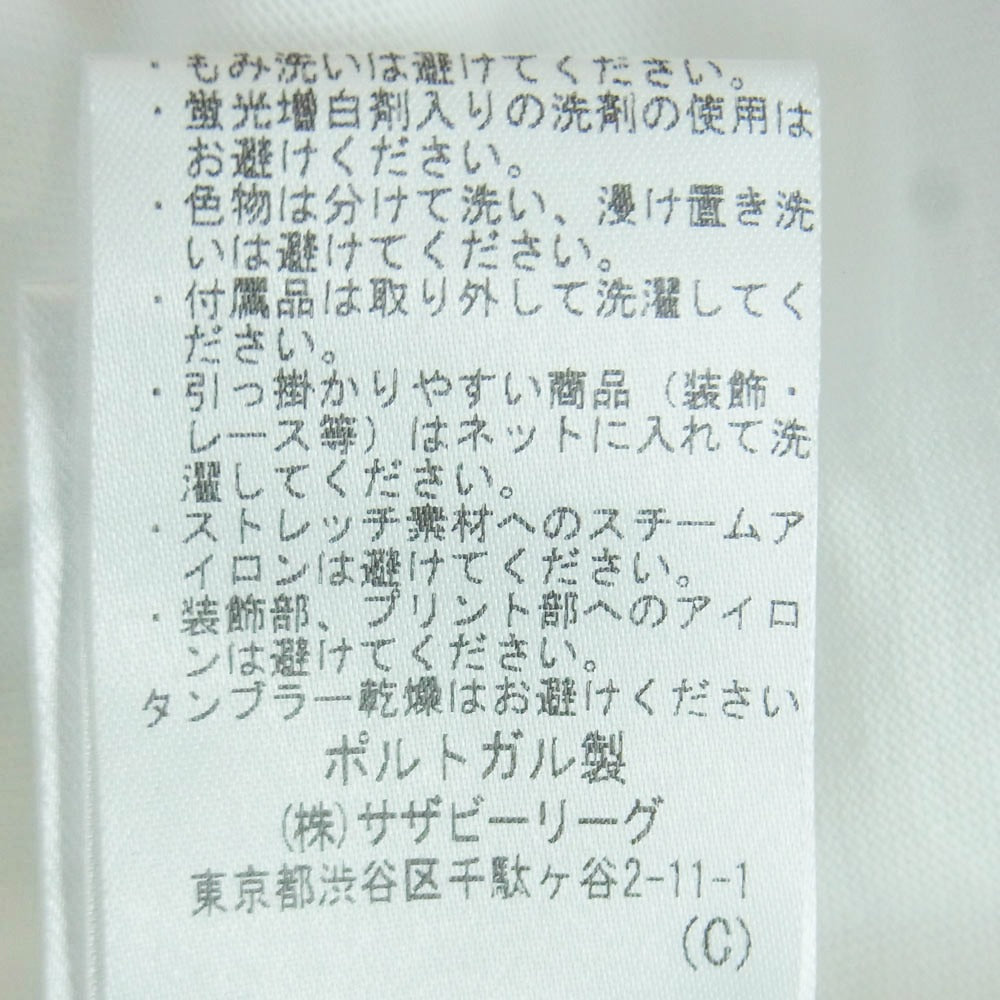 ・もみ洗いは避けてください。
・蛍光増白剤入りの洗剤の使用は
お避けください。
・色物は分けて洗い、浸け置き洗
いは避けてください。
・付属品は取り外して洗濯してく
ださい。
・引っ掛かりやすい商品（装飾・
レース等）はネットに入れて洗
濯してください。
・ストレッチ素材へのスチームア
イロンは避けてください。
・装飾部、プリント部へのアイロ
ンは避けてください。
タンブラー乾燥はお避けください
ポルトガル製
(株)サザビーリーグ
東京都渋谷区千駄ヶ谷2-11-1
(C)